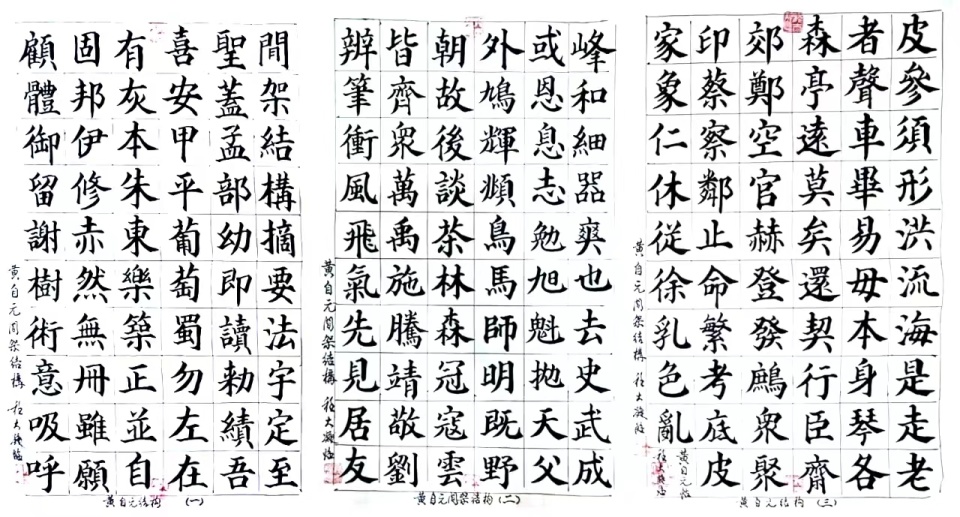 間架結構摘要法宇定至
聖蓋孟部幼即讀勅績吾
喜安甲平葡萄蜀勿左在
有灰本朱東樂築正並自
固邦伊修赤然無冊雖願
顧體御留謝樹術意吸呼
黄自元間架結構
黄自元结构(一)
峰和細器爽也去史武成
或恩息志勉旭魁抛天父
外鳩輝頫鳥馬師明既野
朝故後談茶林森冠寇雲
皆齊衆萬禹施騰靖敬劉
辨筆衝風飛氣先見居友
黄自元間架結構
黄自元间架结构(二)
皮參須形洪流海是走老
者聲車畢易毋本身琴各
森亭遠莫矣還契行臣齊
郊鄭空官赫登發鷓衆聚
印蔡察鄰止命繁考底皮
家象仁休從徐乳色亂
黄自元間架結構
黄自元结构(三)